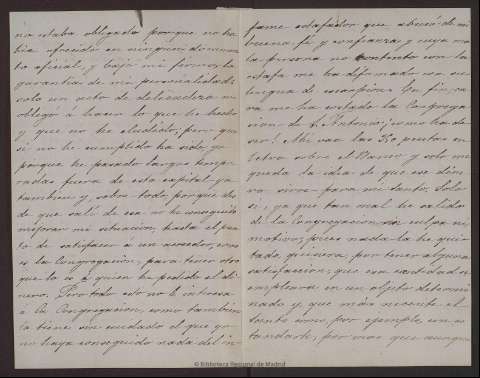 no estaba obligado porque no ha-
bia ofrecido en ningun documen-
to oficial, y bajo mi firma, la
garantía de mi personalidad:
solo un acto de delicadeza me
obligó á hacer lo que he hecho
y que no he eludido; pero que
si no he cumplido ha sido, ya
porque he pasado largas tempo-
radas fuera de esta capital, ya
tambien y, sobre todo, porque des-
de que salí de esa no he conseguido
mejorar mi situacion hasta el pun-
to de satisfacer á un acreedor, como
es la Congregacion, para tener otro
que lo es á quien he pedido el di-
nero. Pero todo esto no le interesa
á la Congregacion, como tambien
la tiene sin cuidado el que yo
no haya conseguido nada del in-
fame estafador que abusó de mi
buena fé y confianza, y cuya ma-
la persona no contento con la
estafa me ha difamado con su
lengua de escorpion. En fin, ca-
ra me ha costado la Congrega-
cion de S. Antonio; ¡como ha de
ser! Ahí van las pesetas en
letra sobre el Banco y solo me
queda la idea de que ese dine-
ro sirva para mi Santo. Solo
si, ya que tan mal he salido
de la Congregacion sin culpa ni
motivo, pues nada la he qui-
tado, quisiera, por tener alguna
satisfaccion, que esa cantidad se
empleara en un objeto determi-
nado y que más necesite el
Santo como por ejemplo, un es-
tandarte, por mas que aunque
© Biblioteca Regional de Madrid